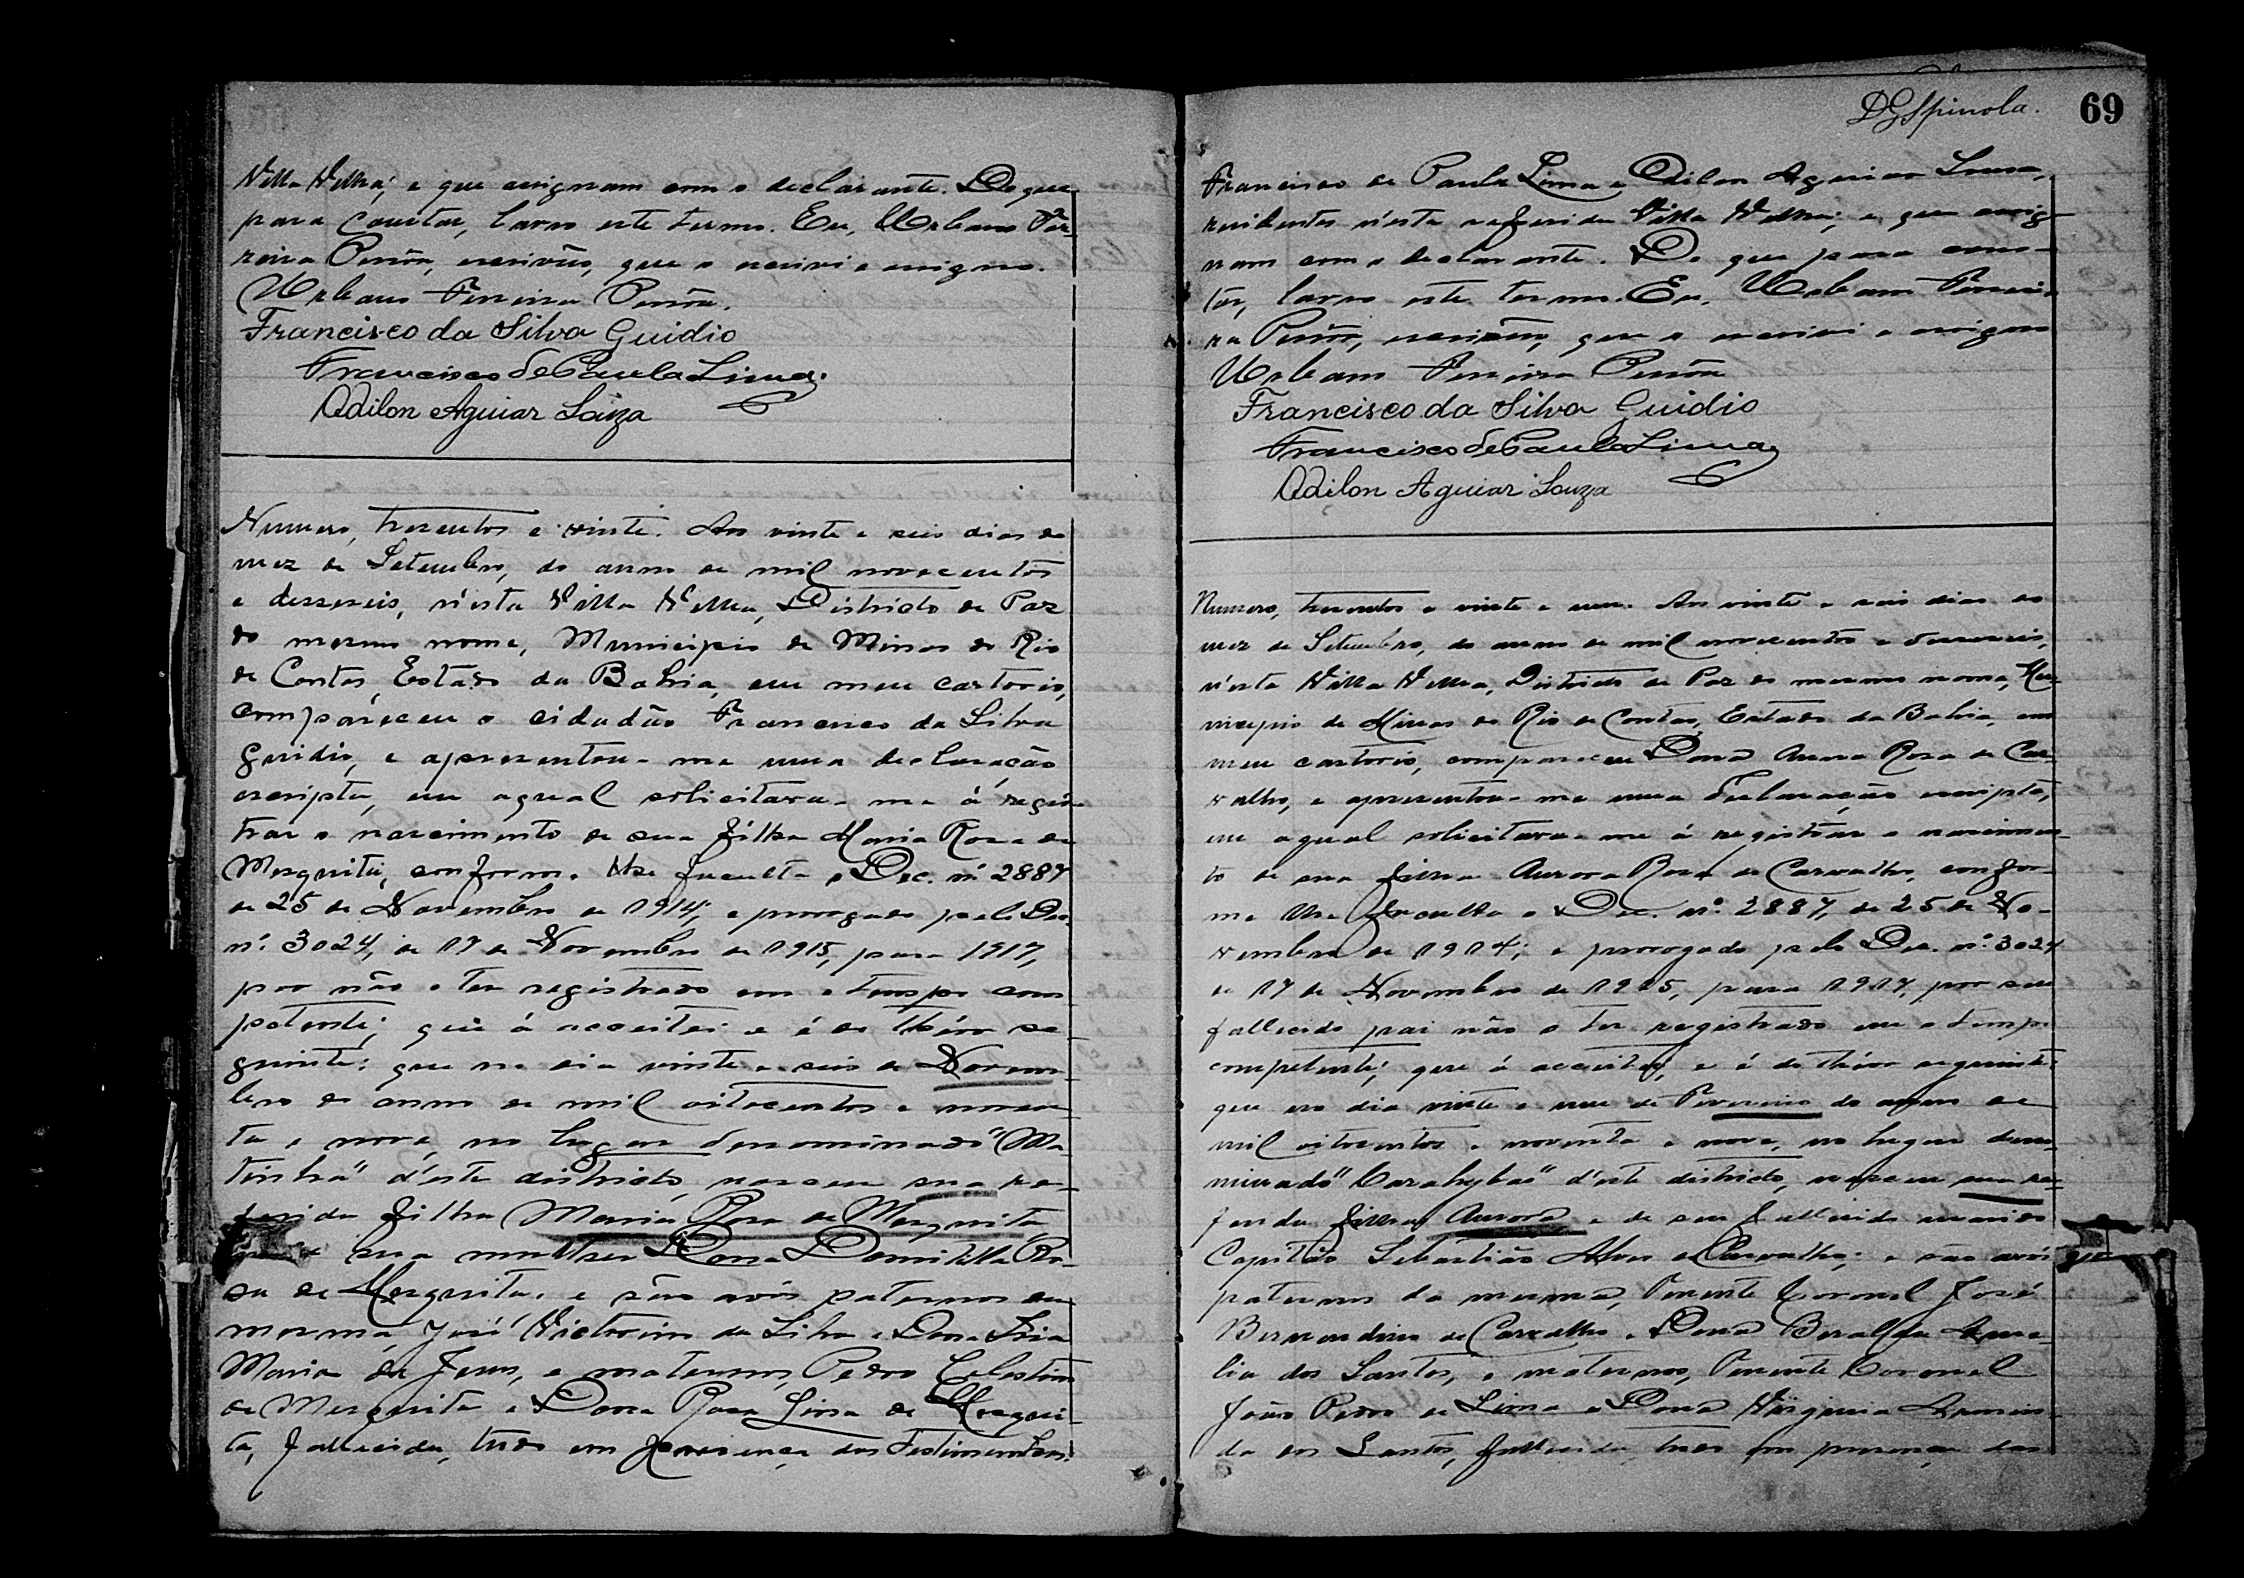 Villa Velha; e que assignam com o declarante. Do que,
para constar, lavro este termo. Eu, Urbano Fer-
reira Pessôa, escrivão, que o escrivi e assigno.
Urbano Ferreira Pessôa.
Francisco da Silva Guidio
Francisco de Paula Lima.
Odilon Aguiar Souza
Numero, trezentos e vinte. Aos vinte e seis dias do
mez de Setembro, do anno de mil novecentos
e dezeseis, n'esta Villa Velha, Districto de Paz
do mesmo nome, Municipio de Minas do Rio
de Contas, Estado da Bahia, em meu cartorio,
compareceu o cidadão Francisco da Silva
Guidio, e apresentou-me uma declaração
escripta, em a qual solicitava-me á regis-
trar o nascimento de sua filha Maria Rosa de
Mesquita, conforme lhe faculta o Dec. nº 2887
de 25 de Novembro de 1914; e prorogado pelo Dec.
nº 3024, de 17 de Novembro de 1915, para 1917,
por não o ter registrado em o tempo com-
petente; que á acceitei e é do thêor se-
guinte: que no dia vinte e seis de Novem-
bro do anno de mil oitocentos e noven-
ta e nove, no lugar denominado "Ma-
tinha" d'este districto, nasceu sua re-
ferida filha Maria Rosa de Mesquita
sua mulher Dona Domitilla Ro-
sa de Mesquita. e são avós paternos da
mesma, José Victorino da Silva e Dona
Maria de Jesus, e maternos, Pedro Celestino
de Mesquita e Dona Rosa Lina de Mesqui-
ta, fallecida, tudo em presença das testimunhas:
DGSpinola. 69
Francisco de Paula Lima e Odilon Aguiar Souza,
residentes n'esta referida Villa Velha; e que assig-
nam com o declarante. Do que para cons-
tar, lavro este termo. Eu, Urbano Ferrei-
ra Pessôa, escrivão, que o escrivi e assigno
Urbano Ferreira Pessôa
Francisco da Silva Guidio
Francisco de Paula Lima
Odilon Aguiar Souza
Numero, trezentos e vinte e um. Aos vinte e seis dias do
mez de Setembro, do anno de mil novecentos e dezeseis,
n'esta Villa Velha, Districto de Paz do mesmo nome, Mu-
nicipio de Minas do Rio de Contas, Estado da Bahia, em
meu cartorio, compareceu Dona Anna Rosa de Car-
valho, e apresentou-me uma declaração escripta,
em a qual solicitava-me á registrar o nascimen-
to de sua filha Aurora Rosa de Carvalho, confor-
me lhe faculta o Dec. nº 2887, de 25 de No-
vembro de 1914; e prorogado pelo Dec. nº 3024
de 17 de Novembro de 1915, para 1917, por seu
fallecido pai não o ter registrado em o tempo
competente; que á acceitei, e é do thêor seguinte:
que no dia vinte e um de Fevereiro do anno de
mil oitocentos e noventa e nove, no lugar deno-
minado "Carahybas" d'este districto, nasceu sua re-
ferida filha Aurora e de seu fallecido marido
Capitão Sebastião Alves de Carvalho; e são avós
paternos da mesma, Tenente Coronel José
Bernardino de Carvalho e Dona
dos Santos, e maternos, Tenente Coronel
João Pedro de Lima e Dona Virginia
dos Santos, fallecida, tudo em presença das